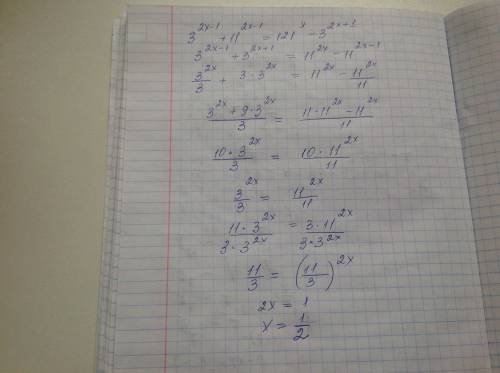 3^{2x-1} + 11^{2x-1} = 121^x - 3^{2x+1}
3^{2x-1} + 3^{2x+1} = 11^{2x} - 11^{2x-1}
\frac{3^{2x}}{3} + 3·3^{2x} = 11^{2x} - \frac{11^{2x}}{11}
\frac{3^{2x} + 9·3^{2x}}{3} = \frac{11·11^{2x} - 11^{2x}}{11}
\frac{10·3^{2x}}{3} = \frac{10·11^{2x}}{11}
\frac{3^{2x}}{3} = \frac{11^{2x}}{11}
\frac{11·3^{2x}}{3·3^{2x}} = \frac{3·11^{2x}}{3·3^{2x}}
\frac{11}{3} = (\frac{11}{3})^{2x}
2x = 1
x = \frac{1}{2}